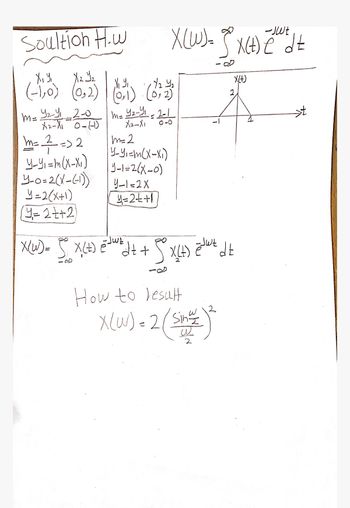 Soultion H.w
X(w)= ∫_{-∞}^{∞} X(t) e^{-Jwt} dt
X₁ y₁ X₂ y₂
(-1,0) (0,2)
m= y₂-y₁/X₂-X₁ = 2-0/0-(-1)
m= 2/1 => 2
y-y₁=m(X-X₁)
y-0=2(X-(-1))
y=2(X+1)
y=2t+2
X₁ y₁ X₂ y₂
(0,1) (0,2)
m= y₂-y₁/X₂-X₁ = 2-1/0-0
m=2
y-y₁=m(X-X₁)
y-1=2(X-0)
y-1=2X
y=2t+1
X(t)
2
-1 1 t
X(w)= ∫_{-∞}^{∞} X₁(t) e^{-Jwt} dt + ∫_{-∞}^{∞} X₂(t) e^{-Jwt} dt
How to result
X(w) = 2 (sin w/2 / w/2)²